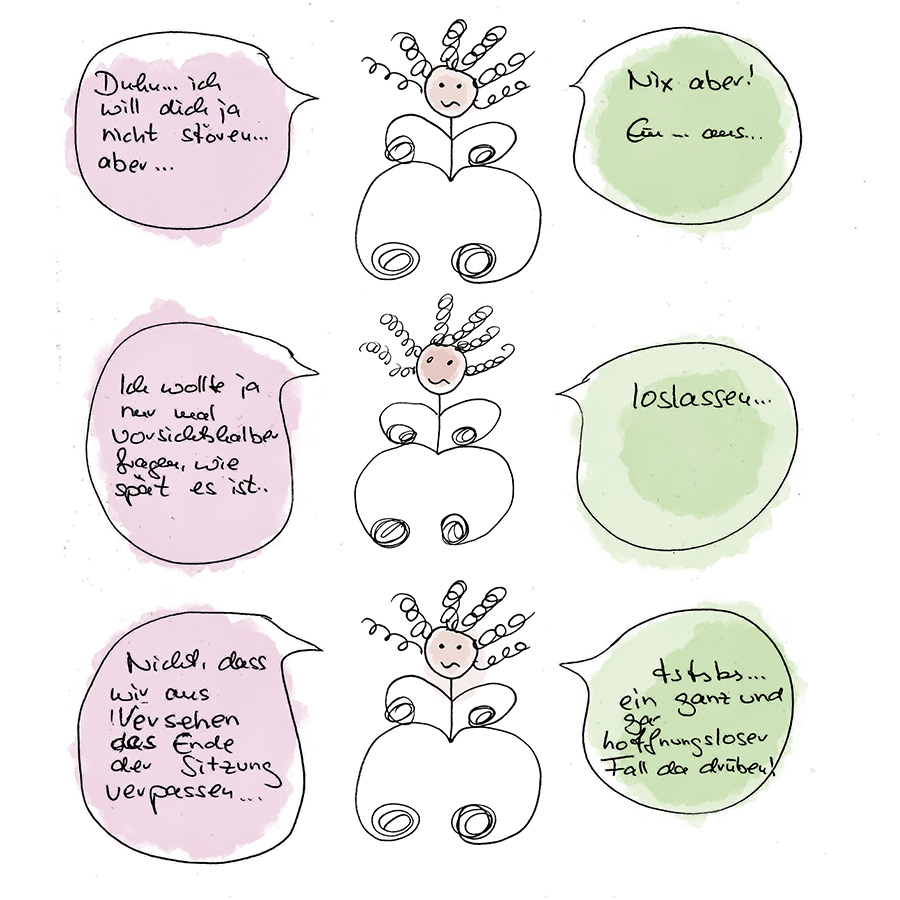 Duhu... ich
will dich ja
nicht stören...
aber...
Nix aber!
Ein ... aus...
Ich wollte ja
nur mal
vorsichtshalber
fragen, wie
spät es ist..
loslassen...
Nicht, dass
wir aus
!Versehen
das Ende
der Sitzung
verpassen...
tststs...
ein ganz und
gar
hoffnungsloser
Fall da drüben!